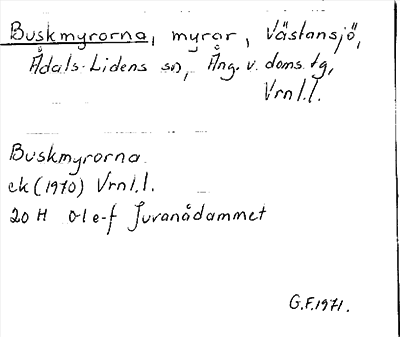 Buskmyrorna, myrar, Västansjö,
Ådals-Lidens sn, Ång. v. doms. tg,
Vrnl.l.
Buskmyrorna
ek (1970) Vrnl.l.
20 H 0-1 e-f Juvanådammet
G.F. 1971.